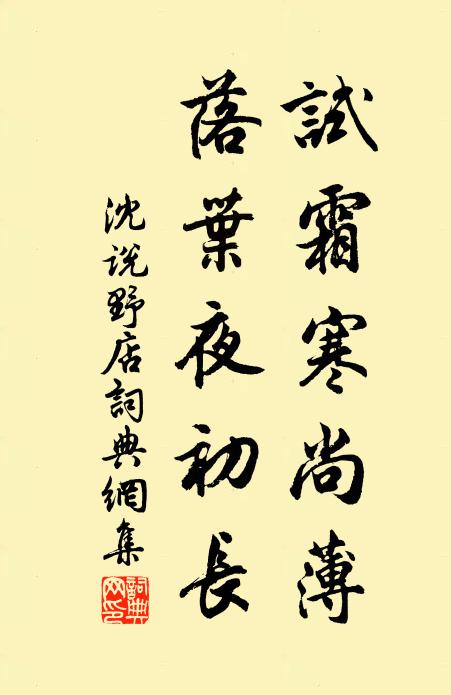 試霜寒尚薄
落葉夜初長
沈説野店詞典網集
詞典網印